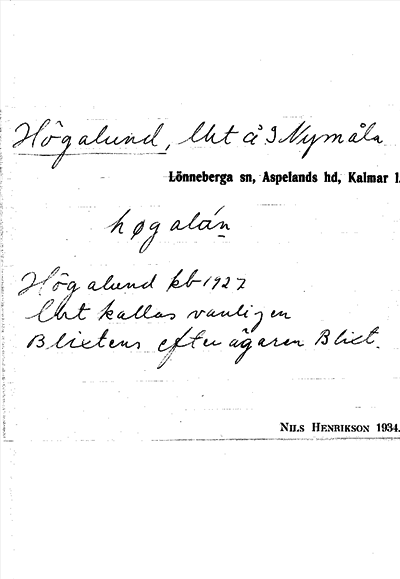 Högalund, lht å 3 Nymåla
Lönneberga sn, Aspelands hd, Kalmar l.
høgalán̠
Högalund kb 1927
lht kallas vanligen
Blixtens efter ägaren Blixt.
NILS HENRIKSON 1934.